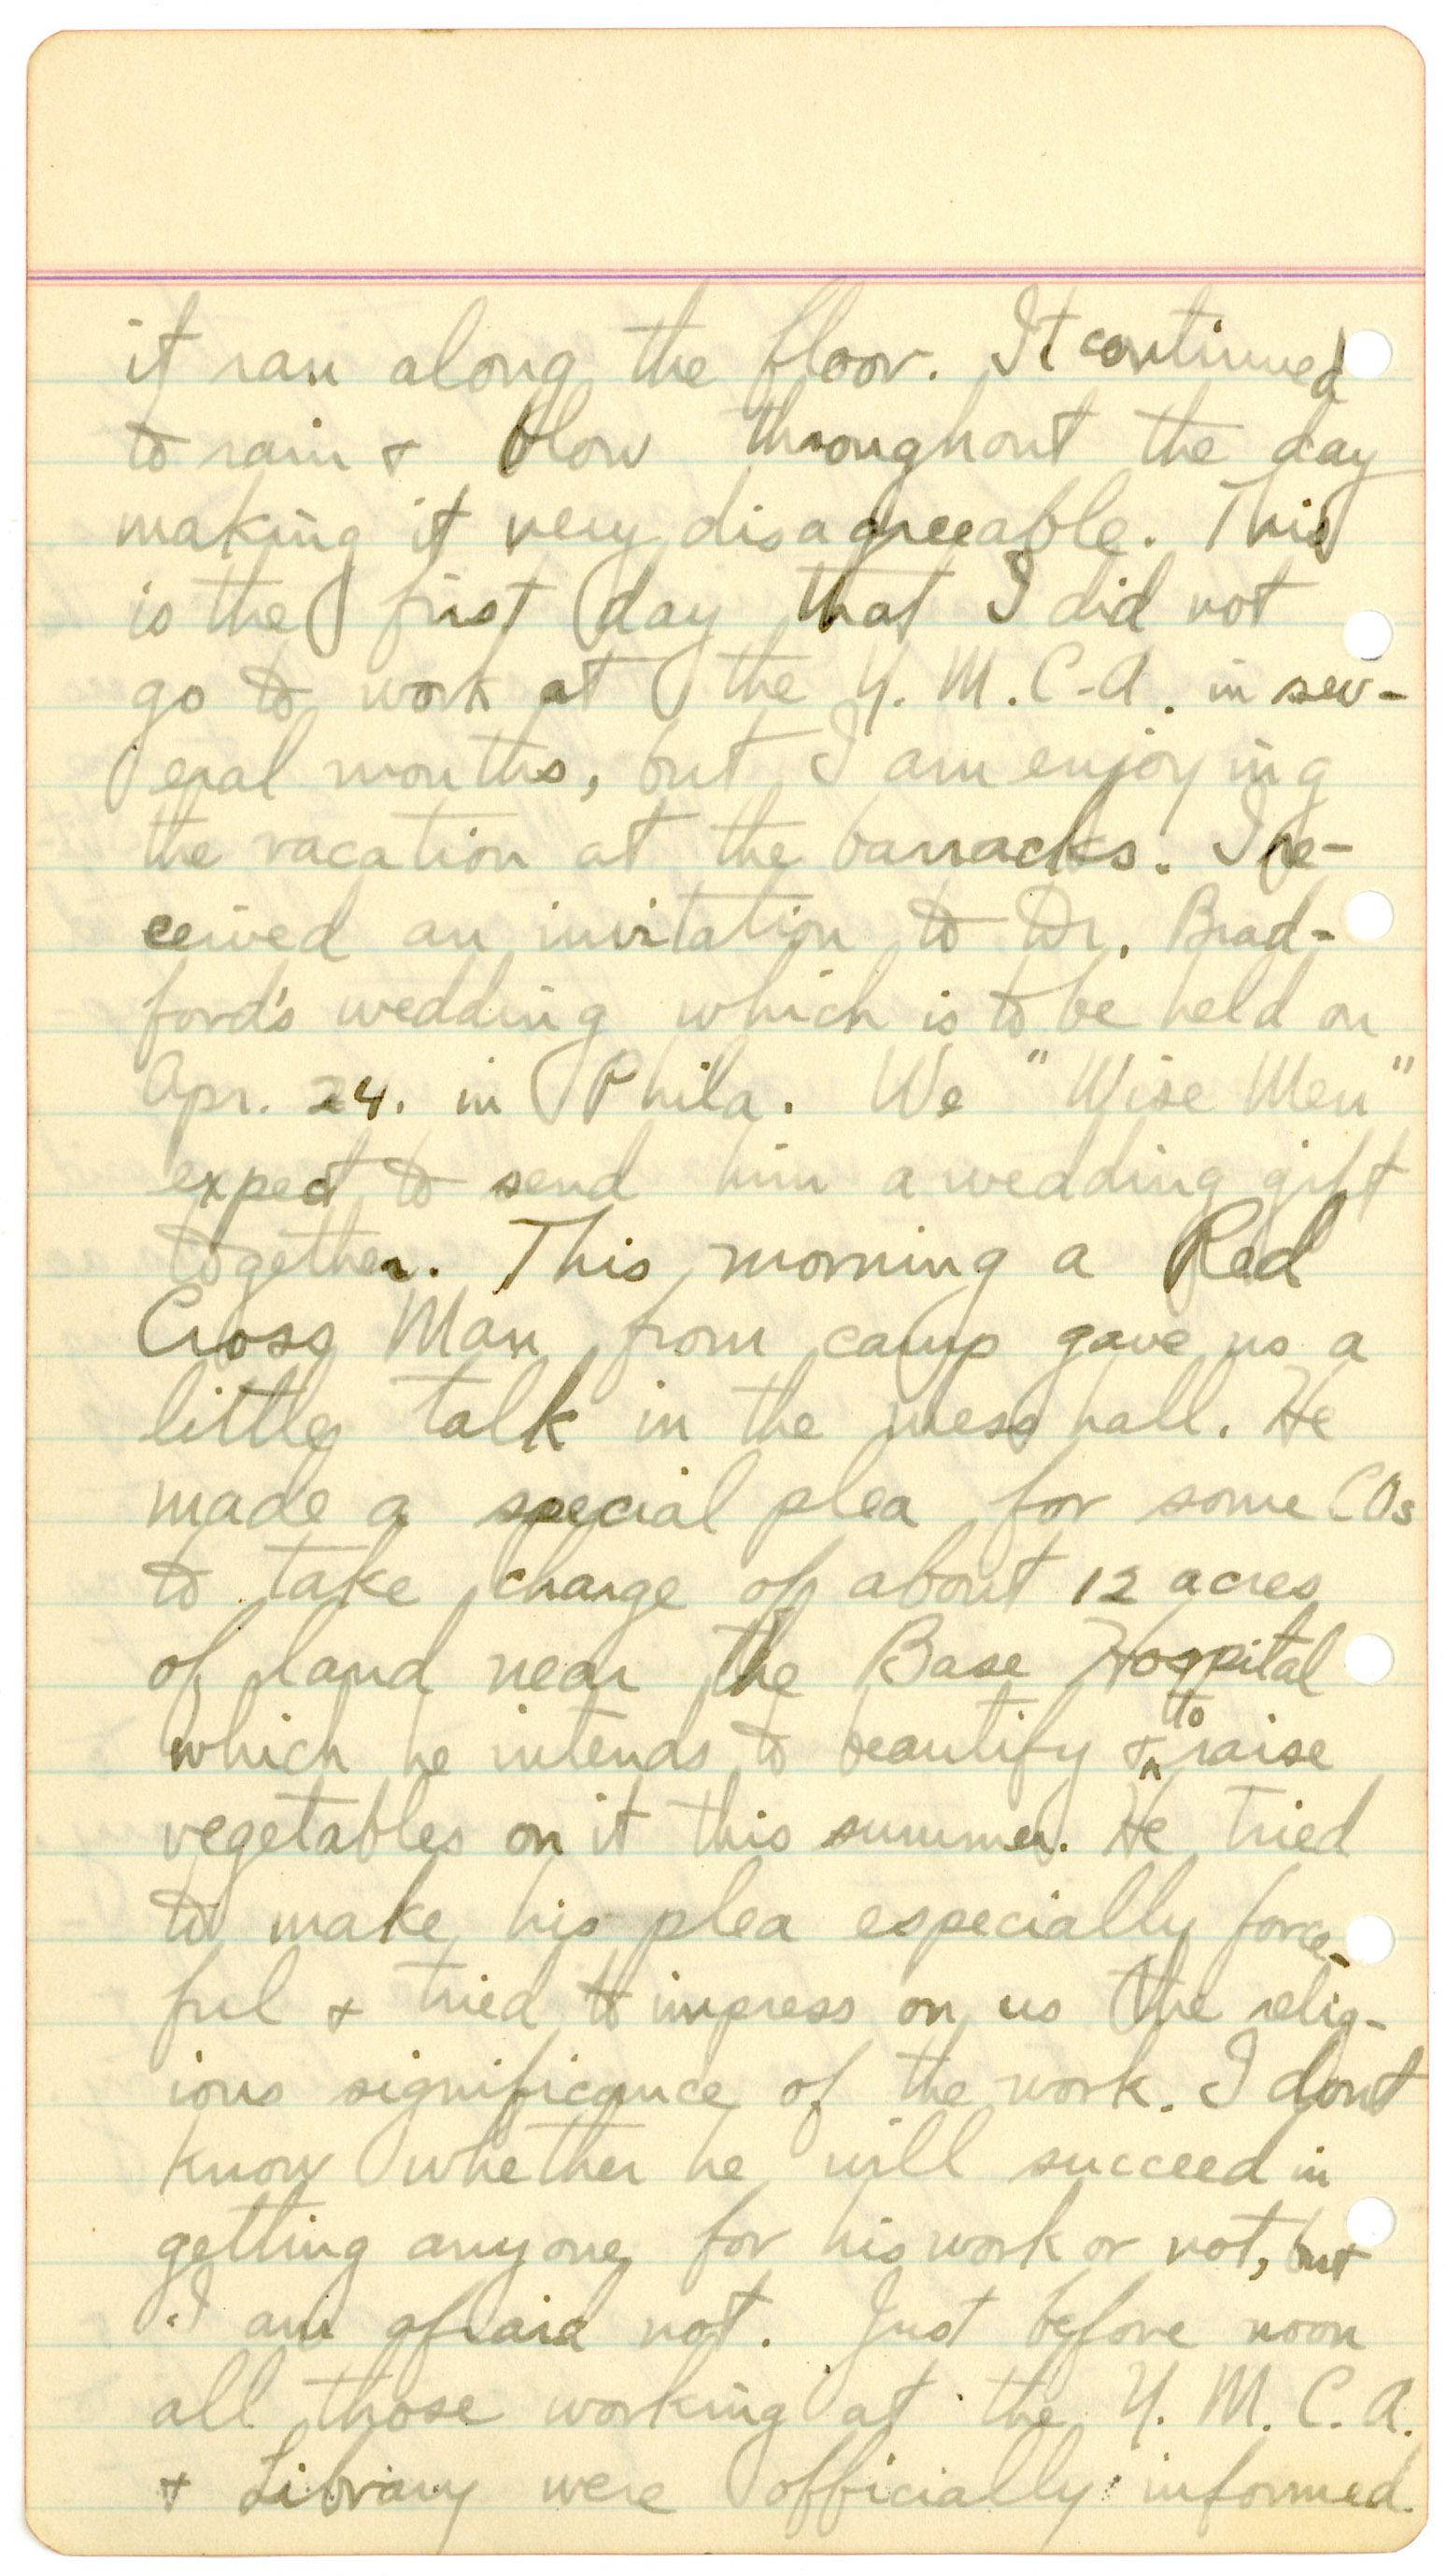 it ran along the floor. It continued
to rain & blow throughout the day
making it very disagreeable. This
is the first day that I did not
go to work at the Y. M. C-A. in sev-
eral months, but I am enjoying
the vacation at the barracks. I re-
ceived an invitation to Dr. Brad-
ford's wedding which is to be held on
Apr. 24. in Phila. We "Wise Men"
expect to send him a wedding gift
together. This morning a Red
Cross Man from camp gave us a
little talk in the mess hall. He
made a special plea for some COs
to take charge of about 12 acres
of land near the Base Hospital
which he intends to beautify & to raise
vegetables on it this summer. He tried
to make his plea especially force-
ful & tried to impress on us the relig-
ious significance of the work. I dont
know whether he will succeed in
getting anyone for his work or not, but
I am afraid not. Just before noon
all those working at the Y. M. C. A.
& Library were officially informed.